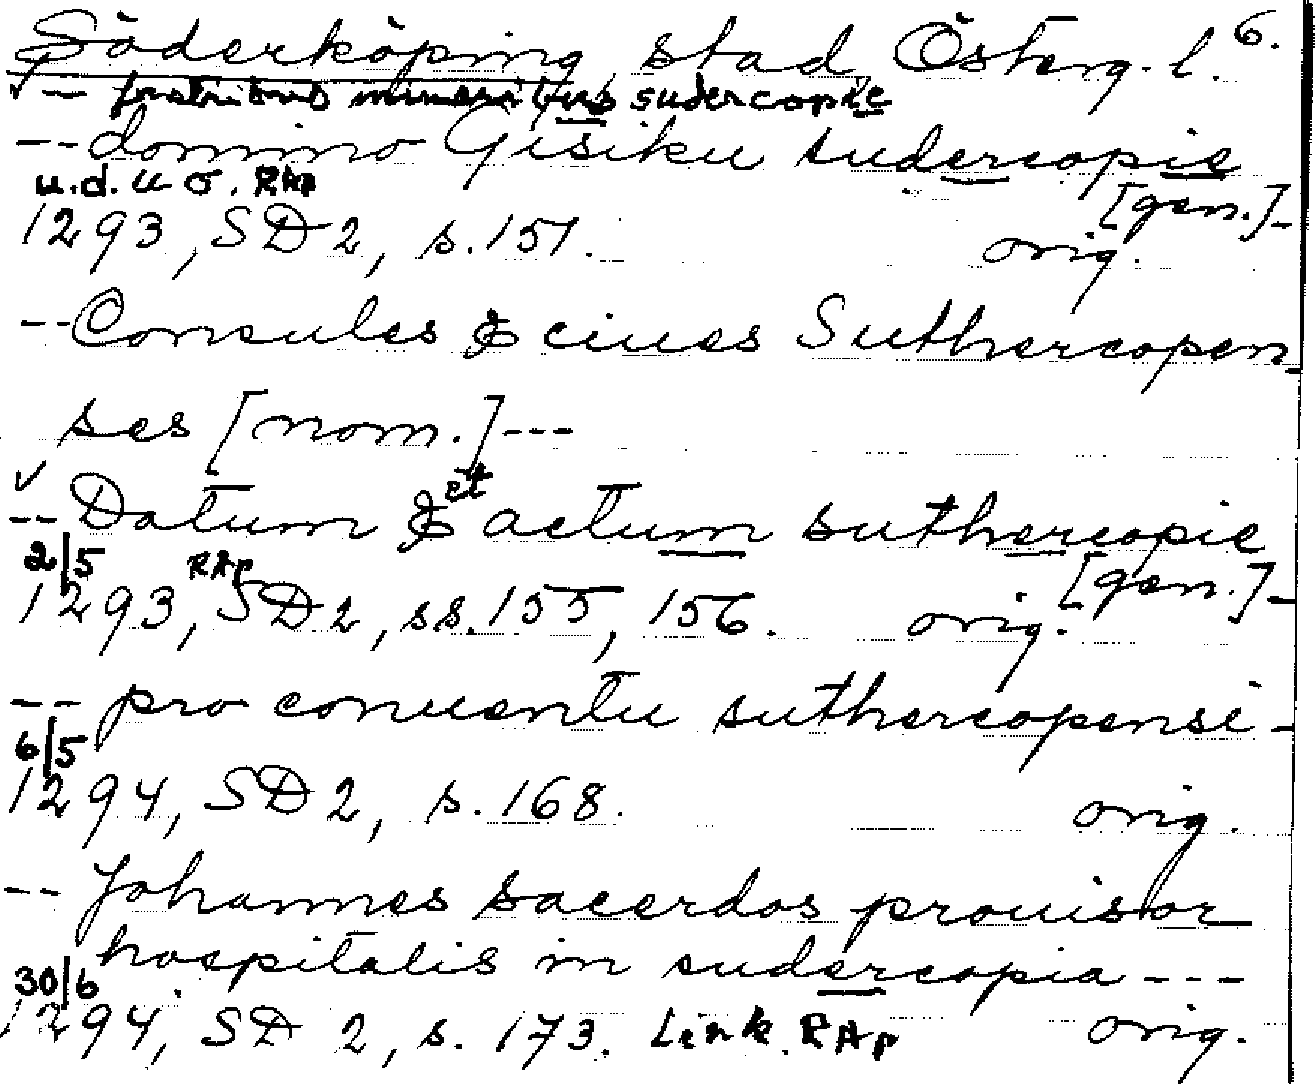 Söderköping stad Österg. l. 6.
-- fratribus minoribus sudercopie
-- domino Gisiku sudercopie
u.d. u o. RAp [gen.]-
1293, SD 2, s. 151. orig.
-- Consules & ciues Suthercopen
ses [nom.] ---
-- Datum & et actum suthercopie
2/5 RAp [gen.]-
1293, SD 2, ss. 155, 156. orig.
-- pro conuentu suthercopensi -
6/5
1294, SD 2, s. 168. orig.
-- Johannes sacerdos prouisor
hospitalis in sudercopia ---
30/6
1294, SD 2, s. 173. Link. RAp orig.